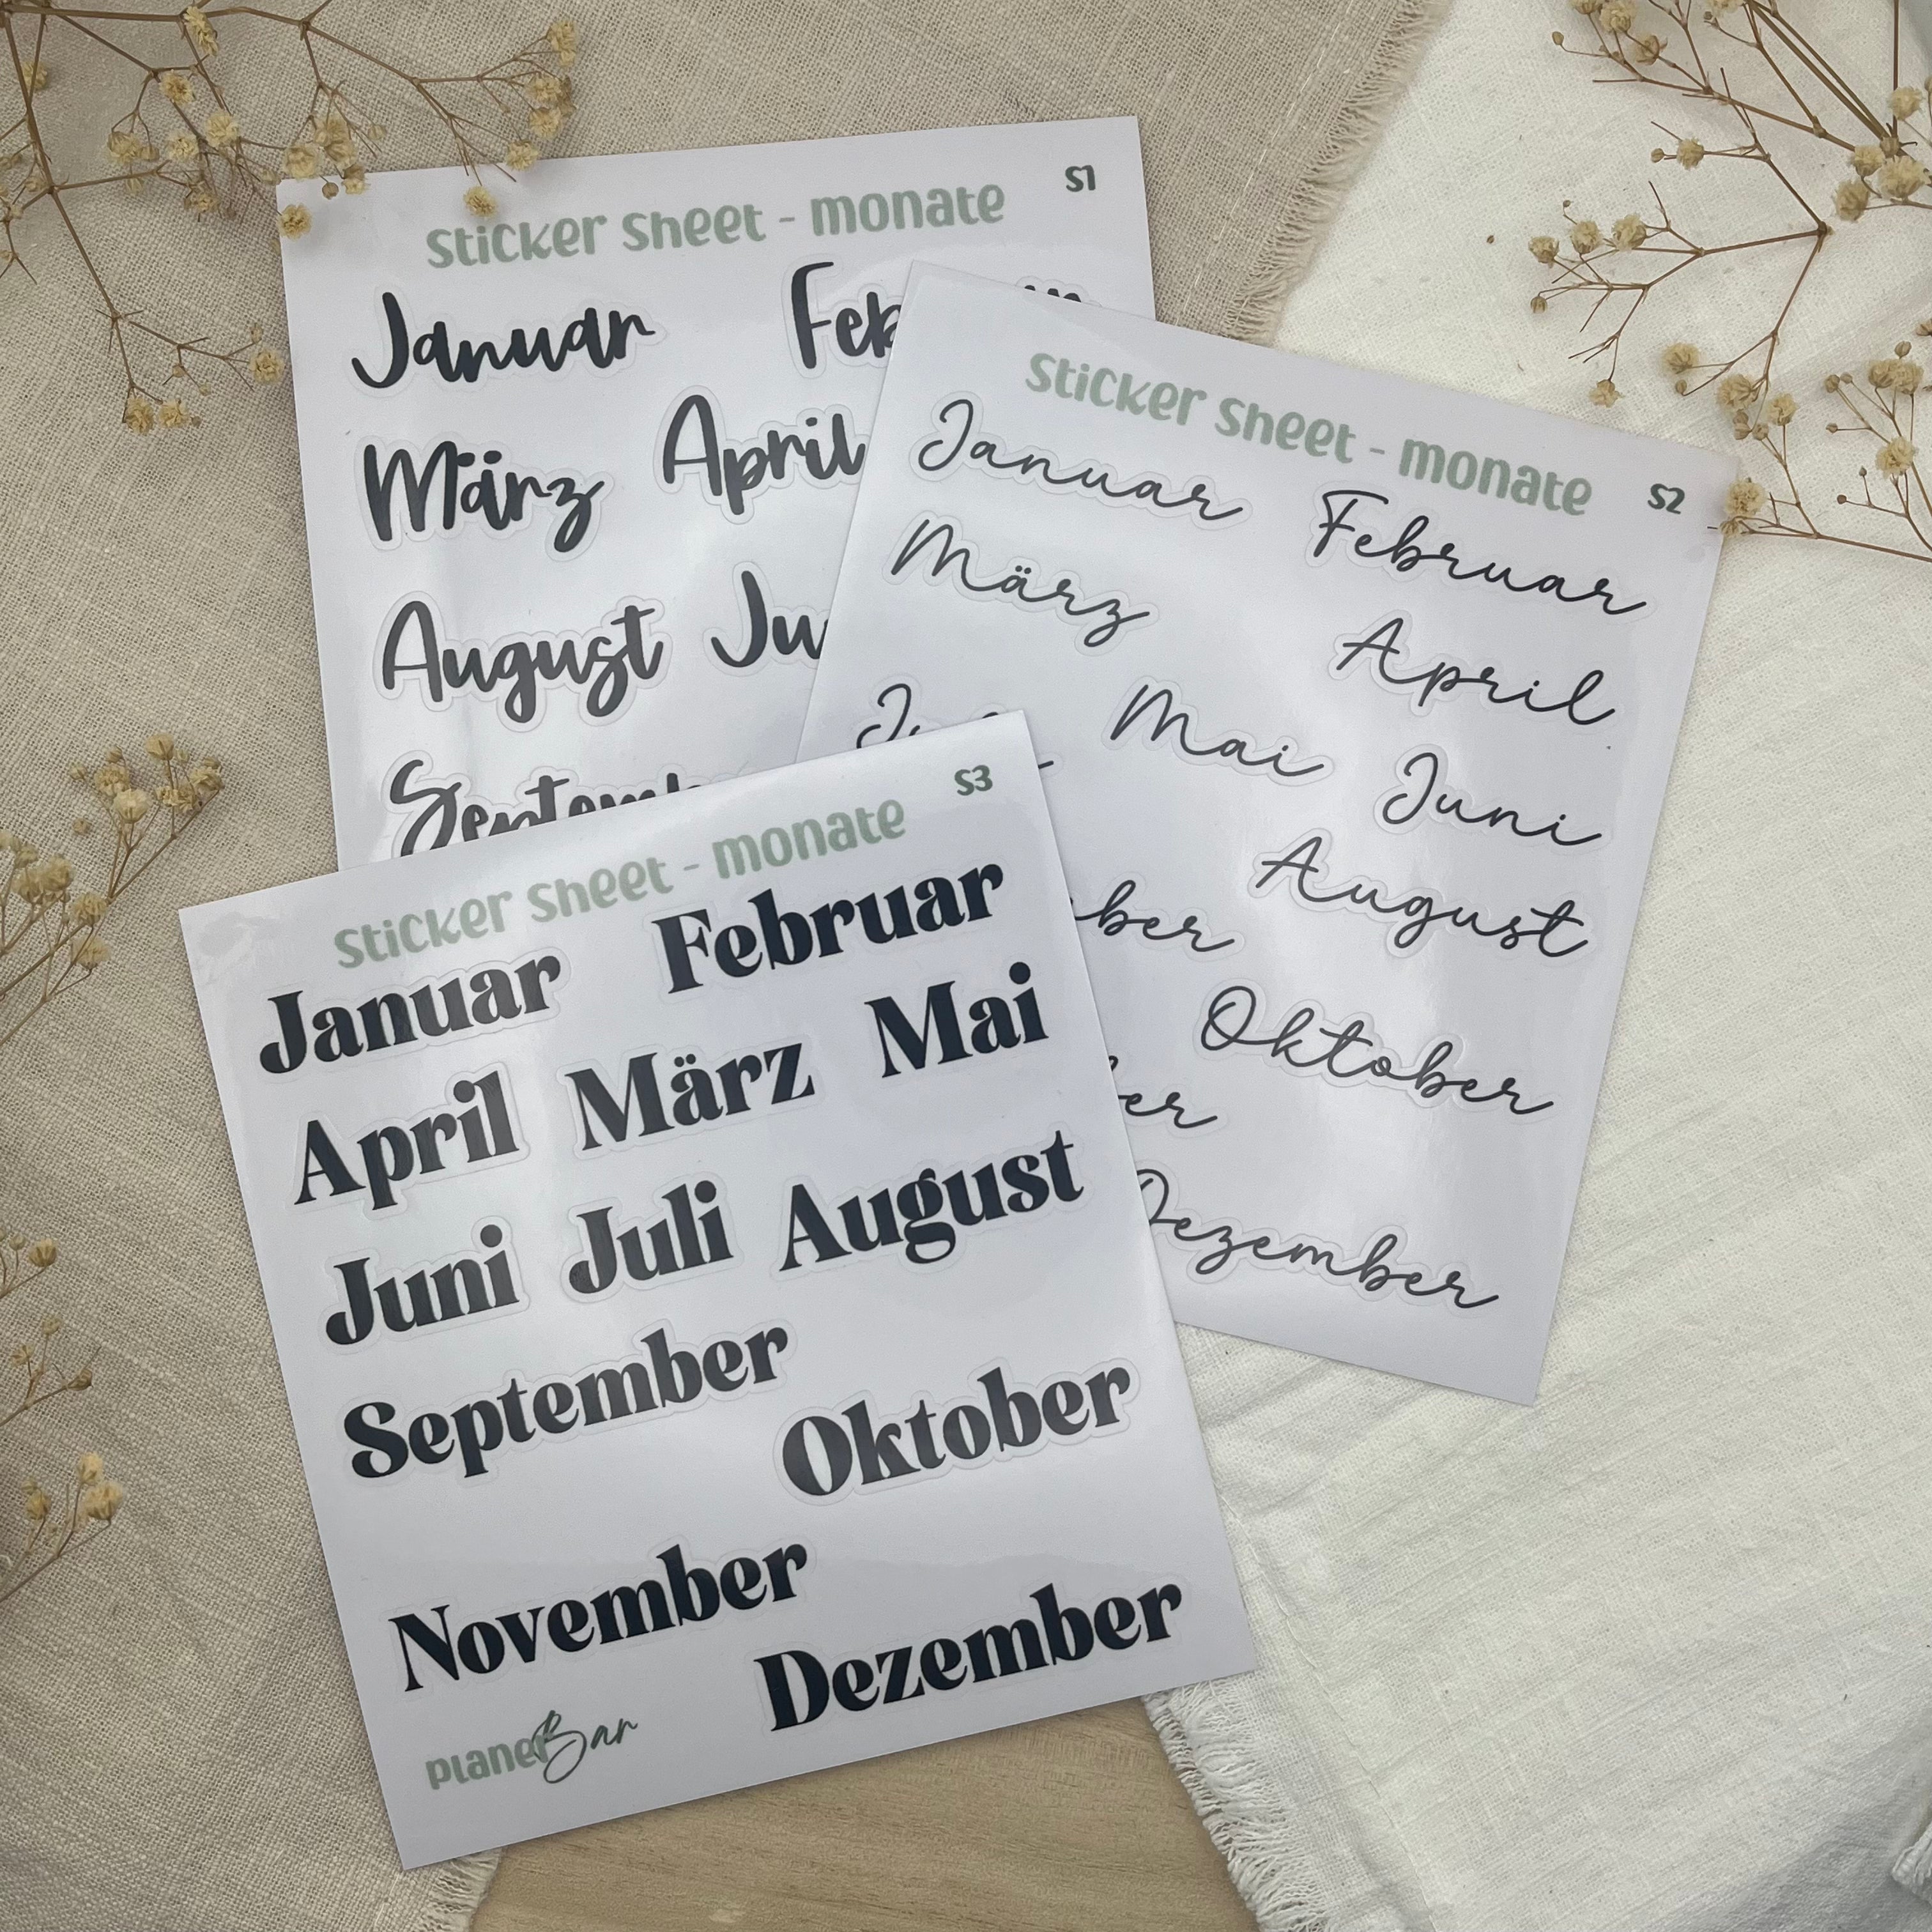 sticker sheet - monate S1
Januar
März April
August
sticker sheet - monate S2
Januar Februar
März April
Mai Juni
August
Oktober
Dezember
sticker sheet - monate S3
Januar Februar
April März Mai
Juni Juli August
September
Oktober
November
Dezember
planeBar